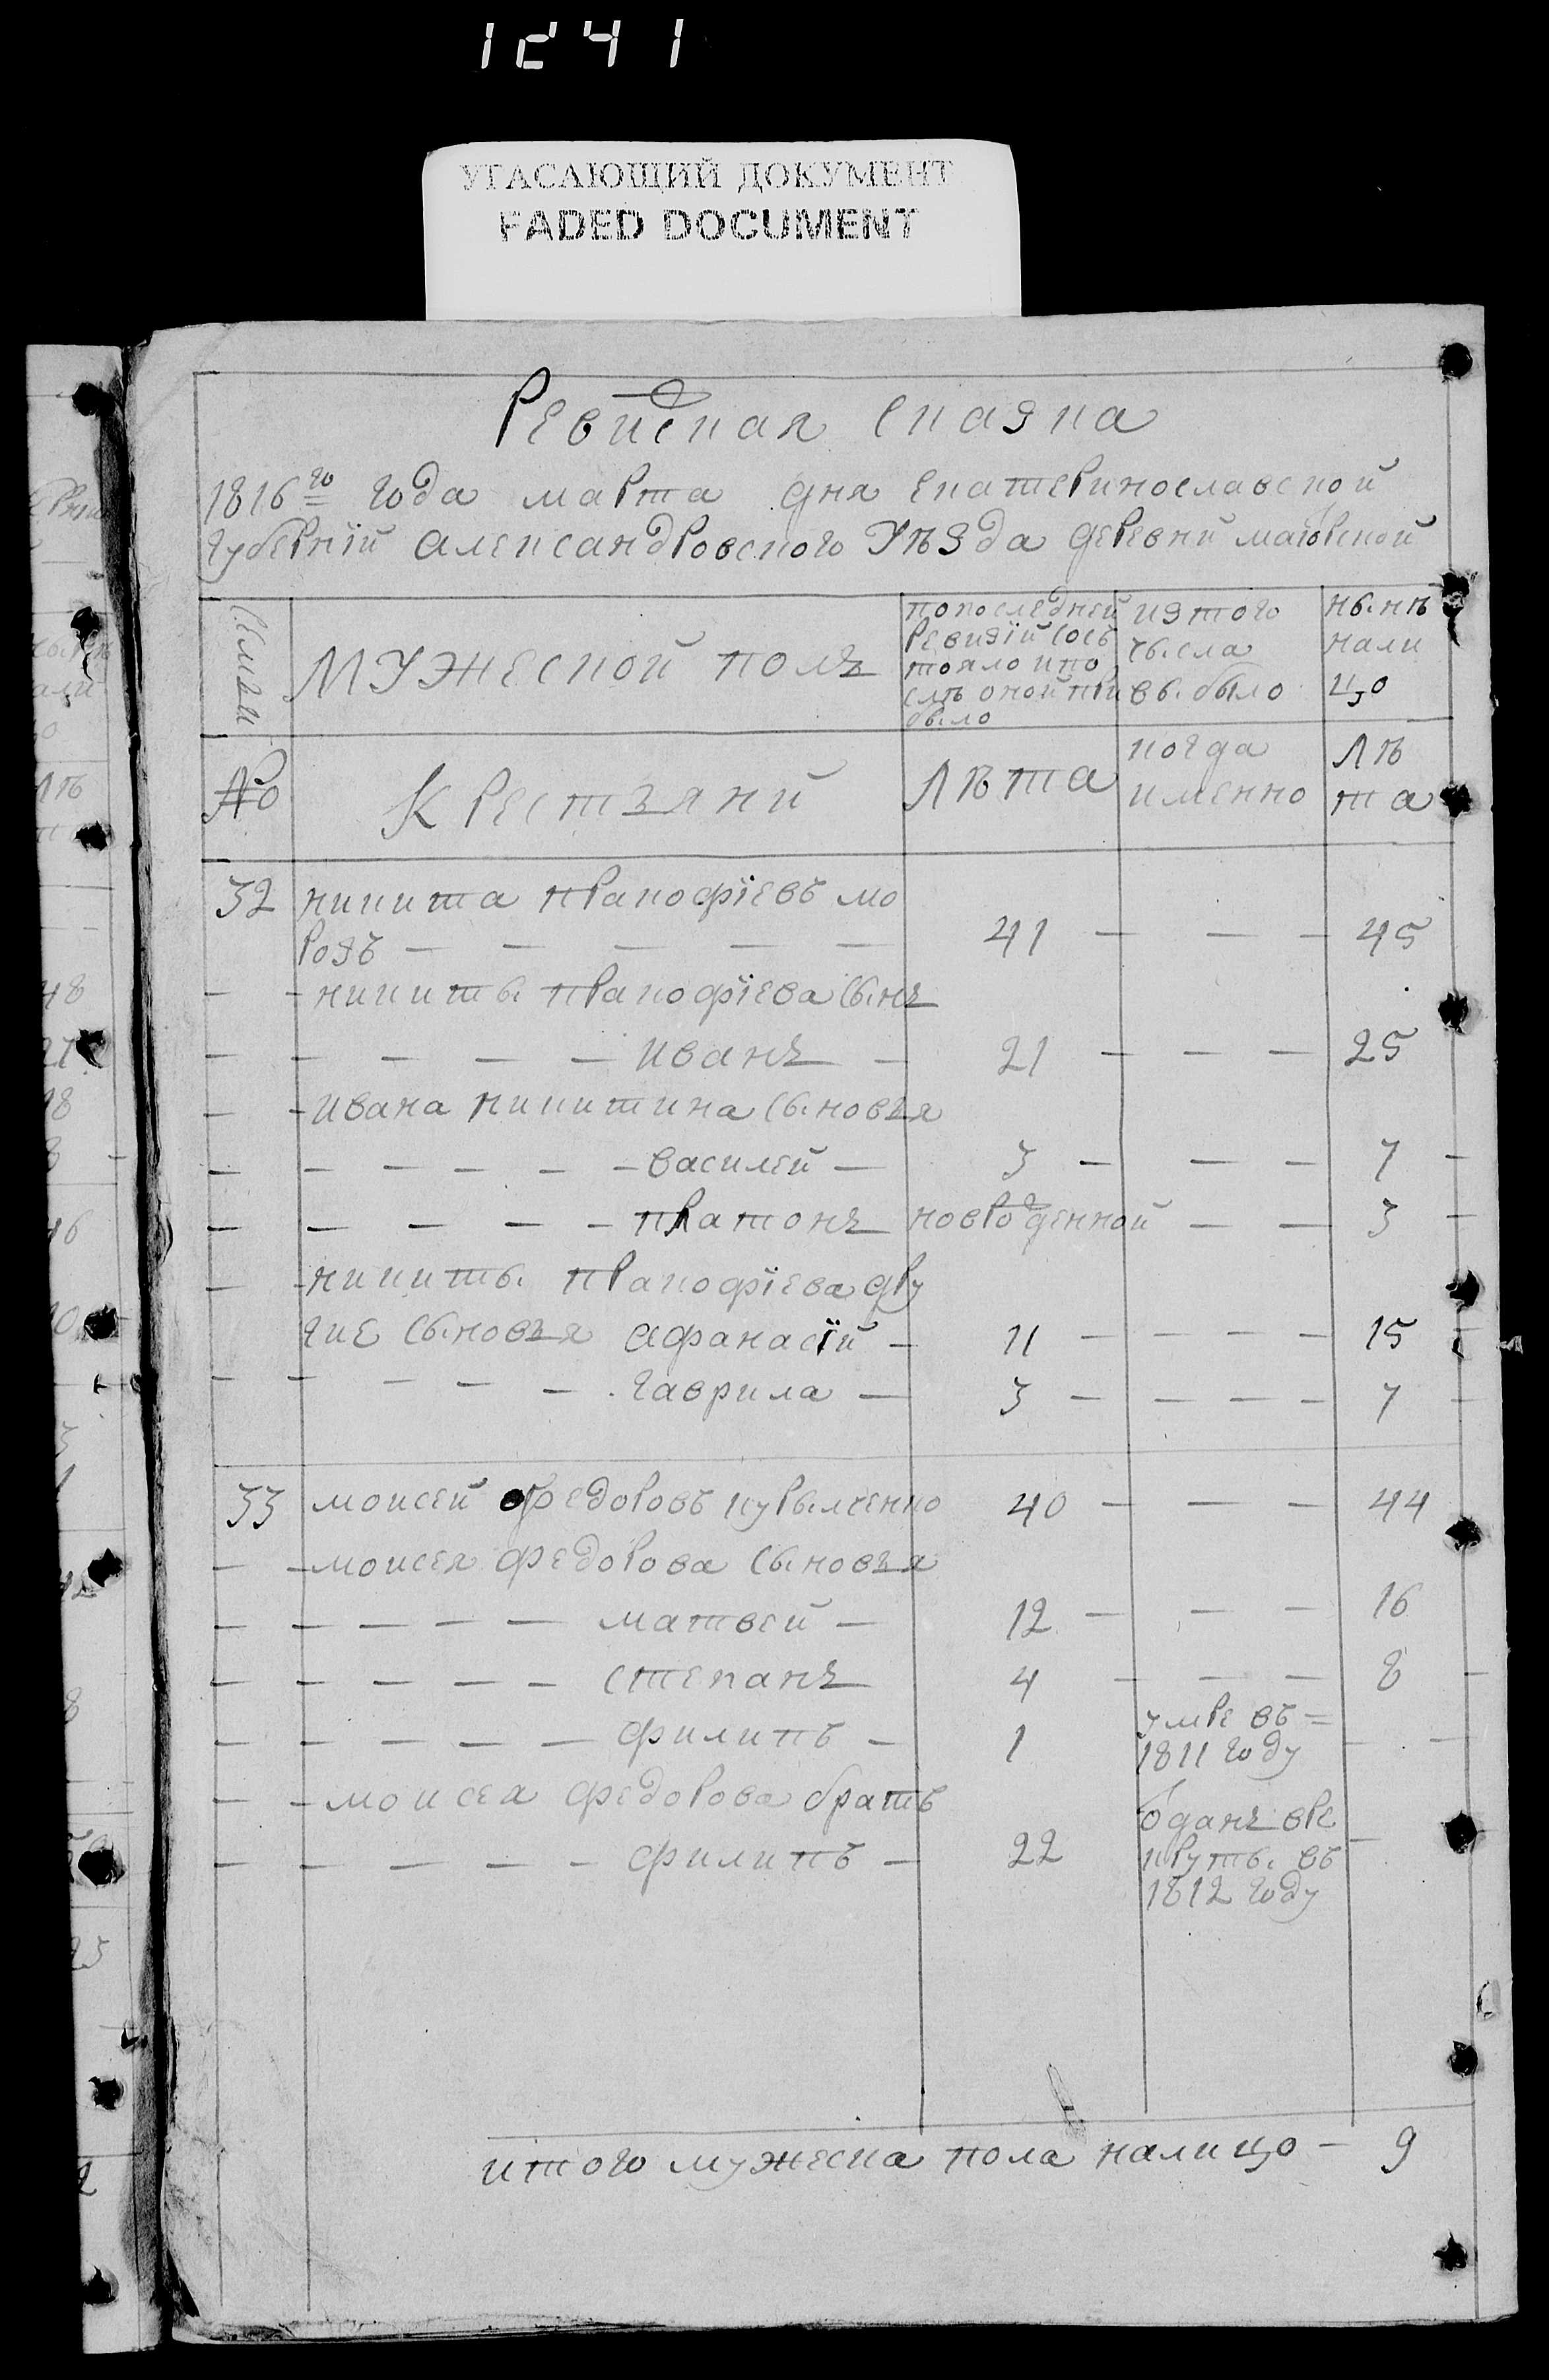 1241
УГАСАЮЩИЙ ДОКУМЕНТ
FADED DOCUMENT
Ревиская скаска
1816го года марта дня екатеринославской
губернїи александровского Уѣзда деревни маіорской
Семьи
мужеской полъ
попоследней ревизїи состояло ипослѣ оной прибыло
изтого
чысла
выбыло
нынѣ
нали
цо
№
крестьяни
Лѣта
когда
именно
Лѣ
та
32 никита пракофїевъ мо
розъ — — — — — 41 — — — 45
— — никиты пракофїева сынъ
— — — — — иванъ — 21 — — — 25
— — ивана никитина сыновья
— — — — — — василей — 3 — — — 7 —
— — — — — — платонъ новорожденной — — 3 —
— — никиты пракофїева дру
гие сыновья афанасїй — 11 — — — — 15
— — — — — гаврила — 3 — — — — 7 —
33 моисей федоровъ курыленко 40 — — — 44
— — моисея федорова сыновья
— — — — — матвей — 12 — — — 16
— — — — — степанъ 4 — — — 8 —
— — — — — филипъ — 1 умре въ=
1811 году — —
— — моисея федорова братъ
— — — — — филипъ — 22 отданъ вре
круты въ —
1812 году
итого мужеска пола налицо — 9